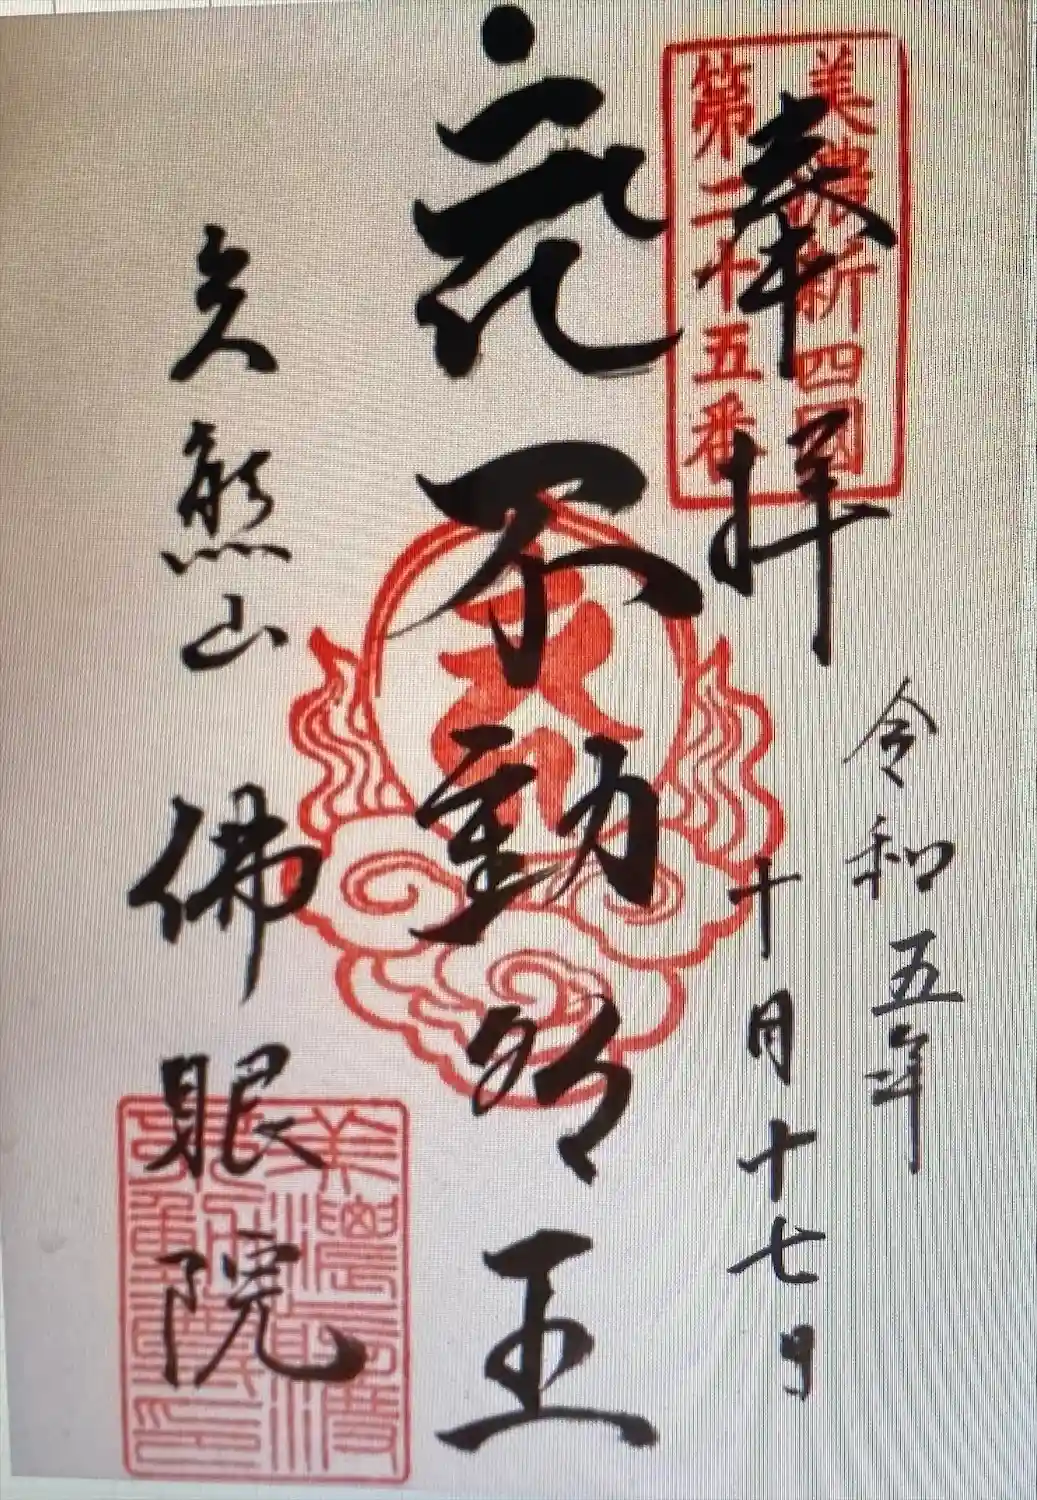 美濃新四國
第二十五番
奉拝
令和五年
十月十七日
不動明王
熊山 佛眼院